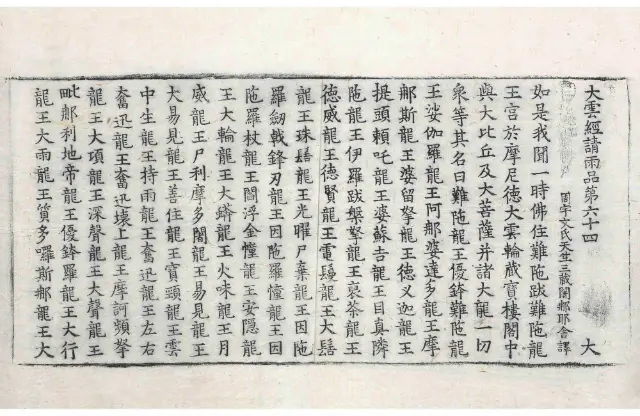 大雲經請雨品第六十四
大
周宇文氏天竺三藏闍那耶舍譯
如是我聞一時佛住難陁跋難陁龍
王宮於摩尼德大雲輪蔵寳樓閣中
與大比丘及大菩薩并諸大龍一切
衆等其名曰難陁龍王優鉢難陁龍
王娑伽羅龍王阿那婆達多龍王摩
那斯龍王婆留拏龍王德义迦龍王
提頭頼吒龍王婆蘇吉龍王目真隣
陁龍王伊羅跋槃拏龍王裒荼龍王
德威龍王德賢龍王電鬘龍王大髻
龍王珠髻龍王光曜尸棄龍王因陁
羅劒戟鋒刃龍王因陁羅憧龍王因
陁羅杖龍王閻浮金憧龍王安隱龍
王大輪龍王大蟒龍王火味龍王月
威龍王尸利摩多闍龍王易見龍王
大易見龍王善住龍王寳頭龍王雲
中生龍王持雨龍王奮迅龍王左右
奮迅龍王奮迅壞上龍王摩訶頻拏
龍王大項龍王深聲龍王大聲龍王
毗那利地帝龍王優鉢羅龍王大行
龍王大雨龍王質多囉斯那龍王大